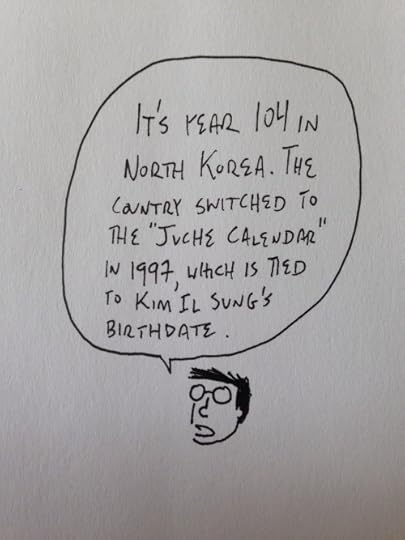 IT'S YEAR 104 IN
NORTH KOREA. THE
COUNTRY SWITCHED TO
THE "JUCHE CALENDAR"
IN 1997, WHICH IS TIED
TO KIM IL SUNG'S
BIRTHDATE.